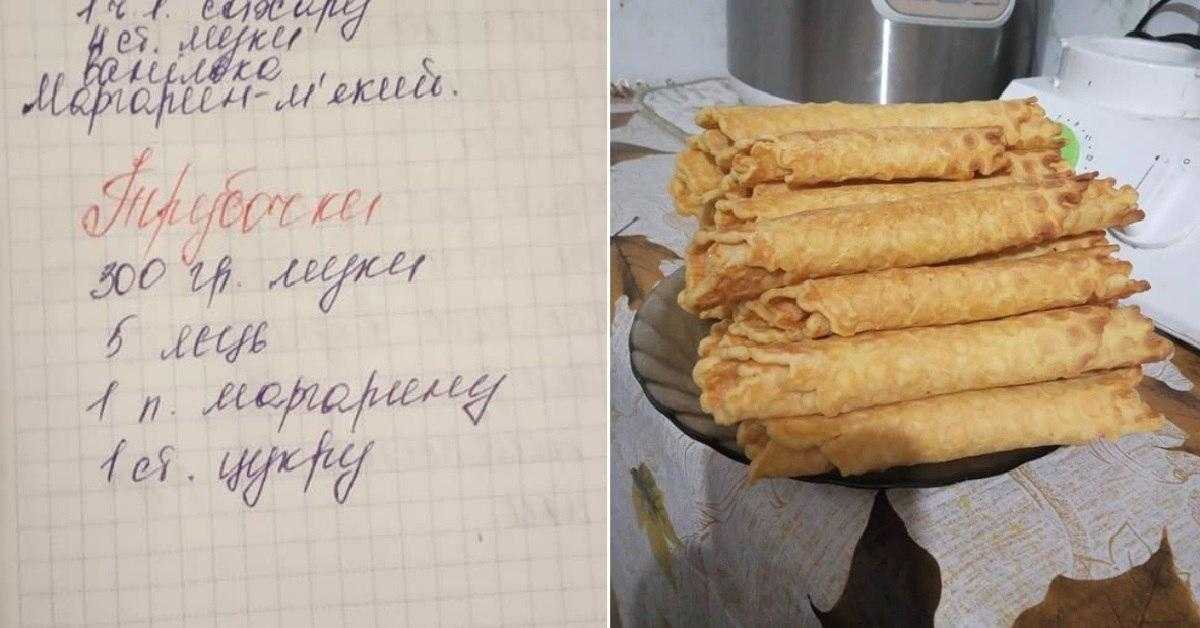 1 ч. л. сахару
4 ст. муки
Ванілька
Маргарин-м'який.
Трубочки
300 гр. муки
5 яєць
1 п. маргарину
1 ст. цукру